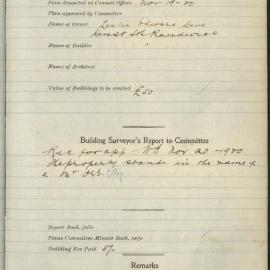 Plan deposited at Council Office Nov 19-20
Plan approved by Committee
Name of Owner Leslie Edward
St Randwick
Name of Builder
Name of Architect
Value of Buildings to be erected
£50
Building Surveyor's Report to Committee
Rec for app Nov 20-1920
The property stands in the name of
a Mr
Report Book, folio
Plans Committee Minute Book, page
Building Fee Paid 5/-
Remarks